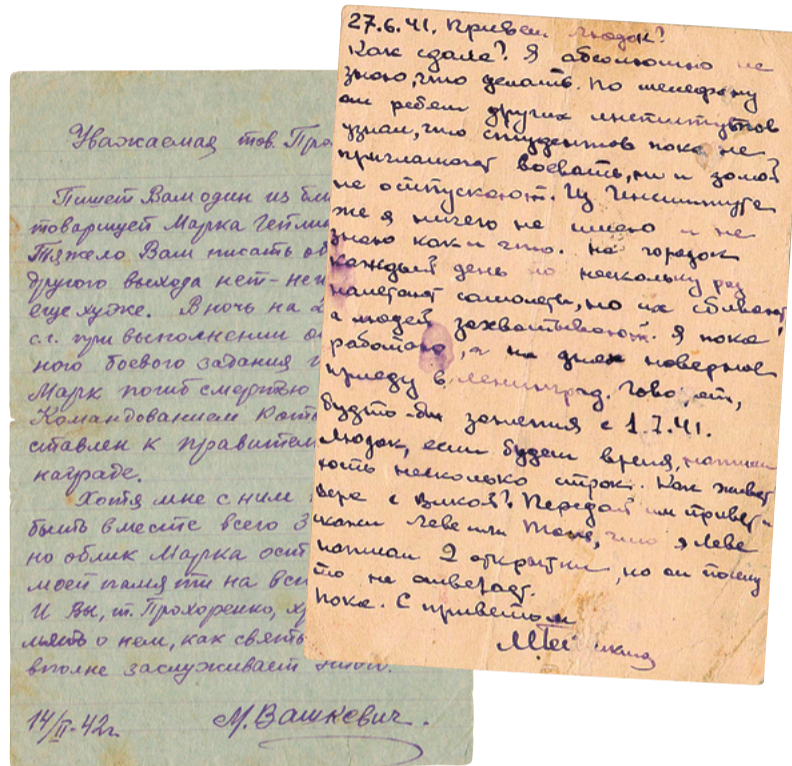 Уважаемая тов. Про
Пишет Вам один из бли
товарищей Марка Гейли
Тяжело Вам писать об
другого выхода нет-не
еще хуже. В ночь на 2
с.г. при выполнении о
ного боевого задания
Марк погиб смертью
Командованием
ставлен к правител
награде.
Хотя мне с ним
быть вместе всего 3
но облик Марка оста
моей памяти на вс
И Вы, т. Прохоренко, х
мять о нем, как свять
вполне заслуживает этого.
14/II-42г. М. Вашкевич.
27.6.41. Привет Людок!
Как сдала? Я абсолютно не
знаю, что делать. По телефону
от ребят других институтов
узнал, что студентов пока не
приглашают воевать, но и домой
не отпускают. Из Института
же я ничего не имею и не
знаю как и что. На городок
каждый день по нескольку раз
налетают самолеты, но их сбивают,
а людей захватывают. Я пока
работаю, а на днях наверное
приеду в Ленинград. Говорят,
будто-бы занятия с 1.7.41.
Людок, если будет время, напиши
хоть несколько строк. Как живет
Вера с Викой? Передай им привет и
скажи Леве или Тане, что я Леве
написал 2 открытки, но он почему
то не отвечает.
Пока. С приветом